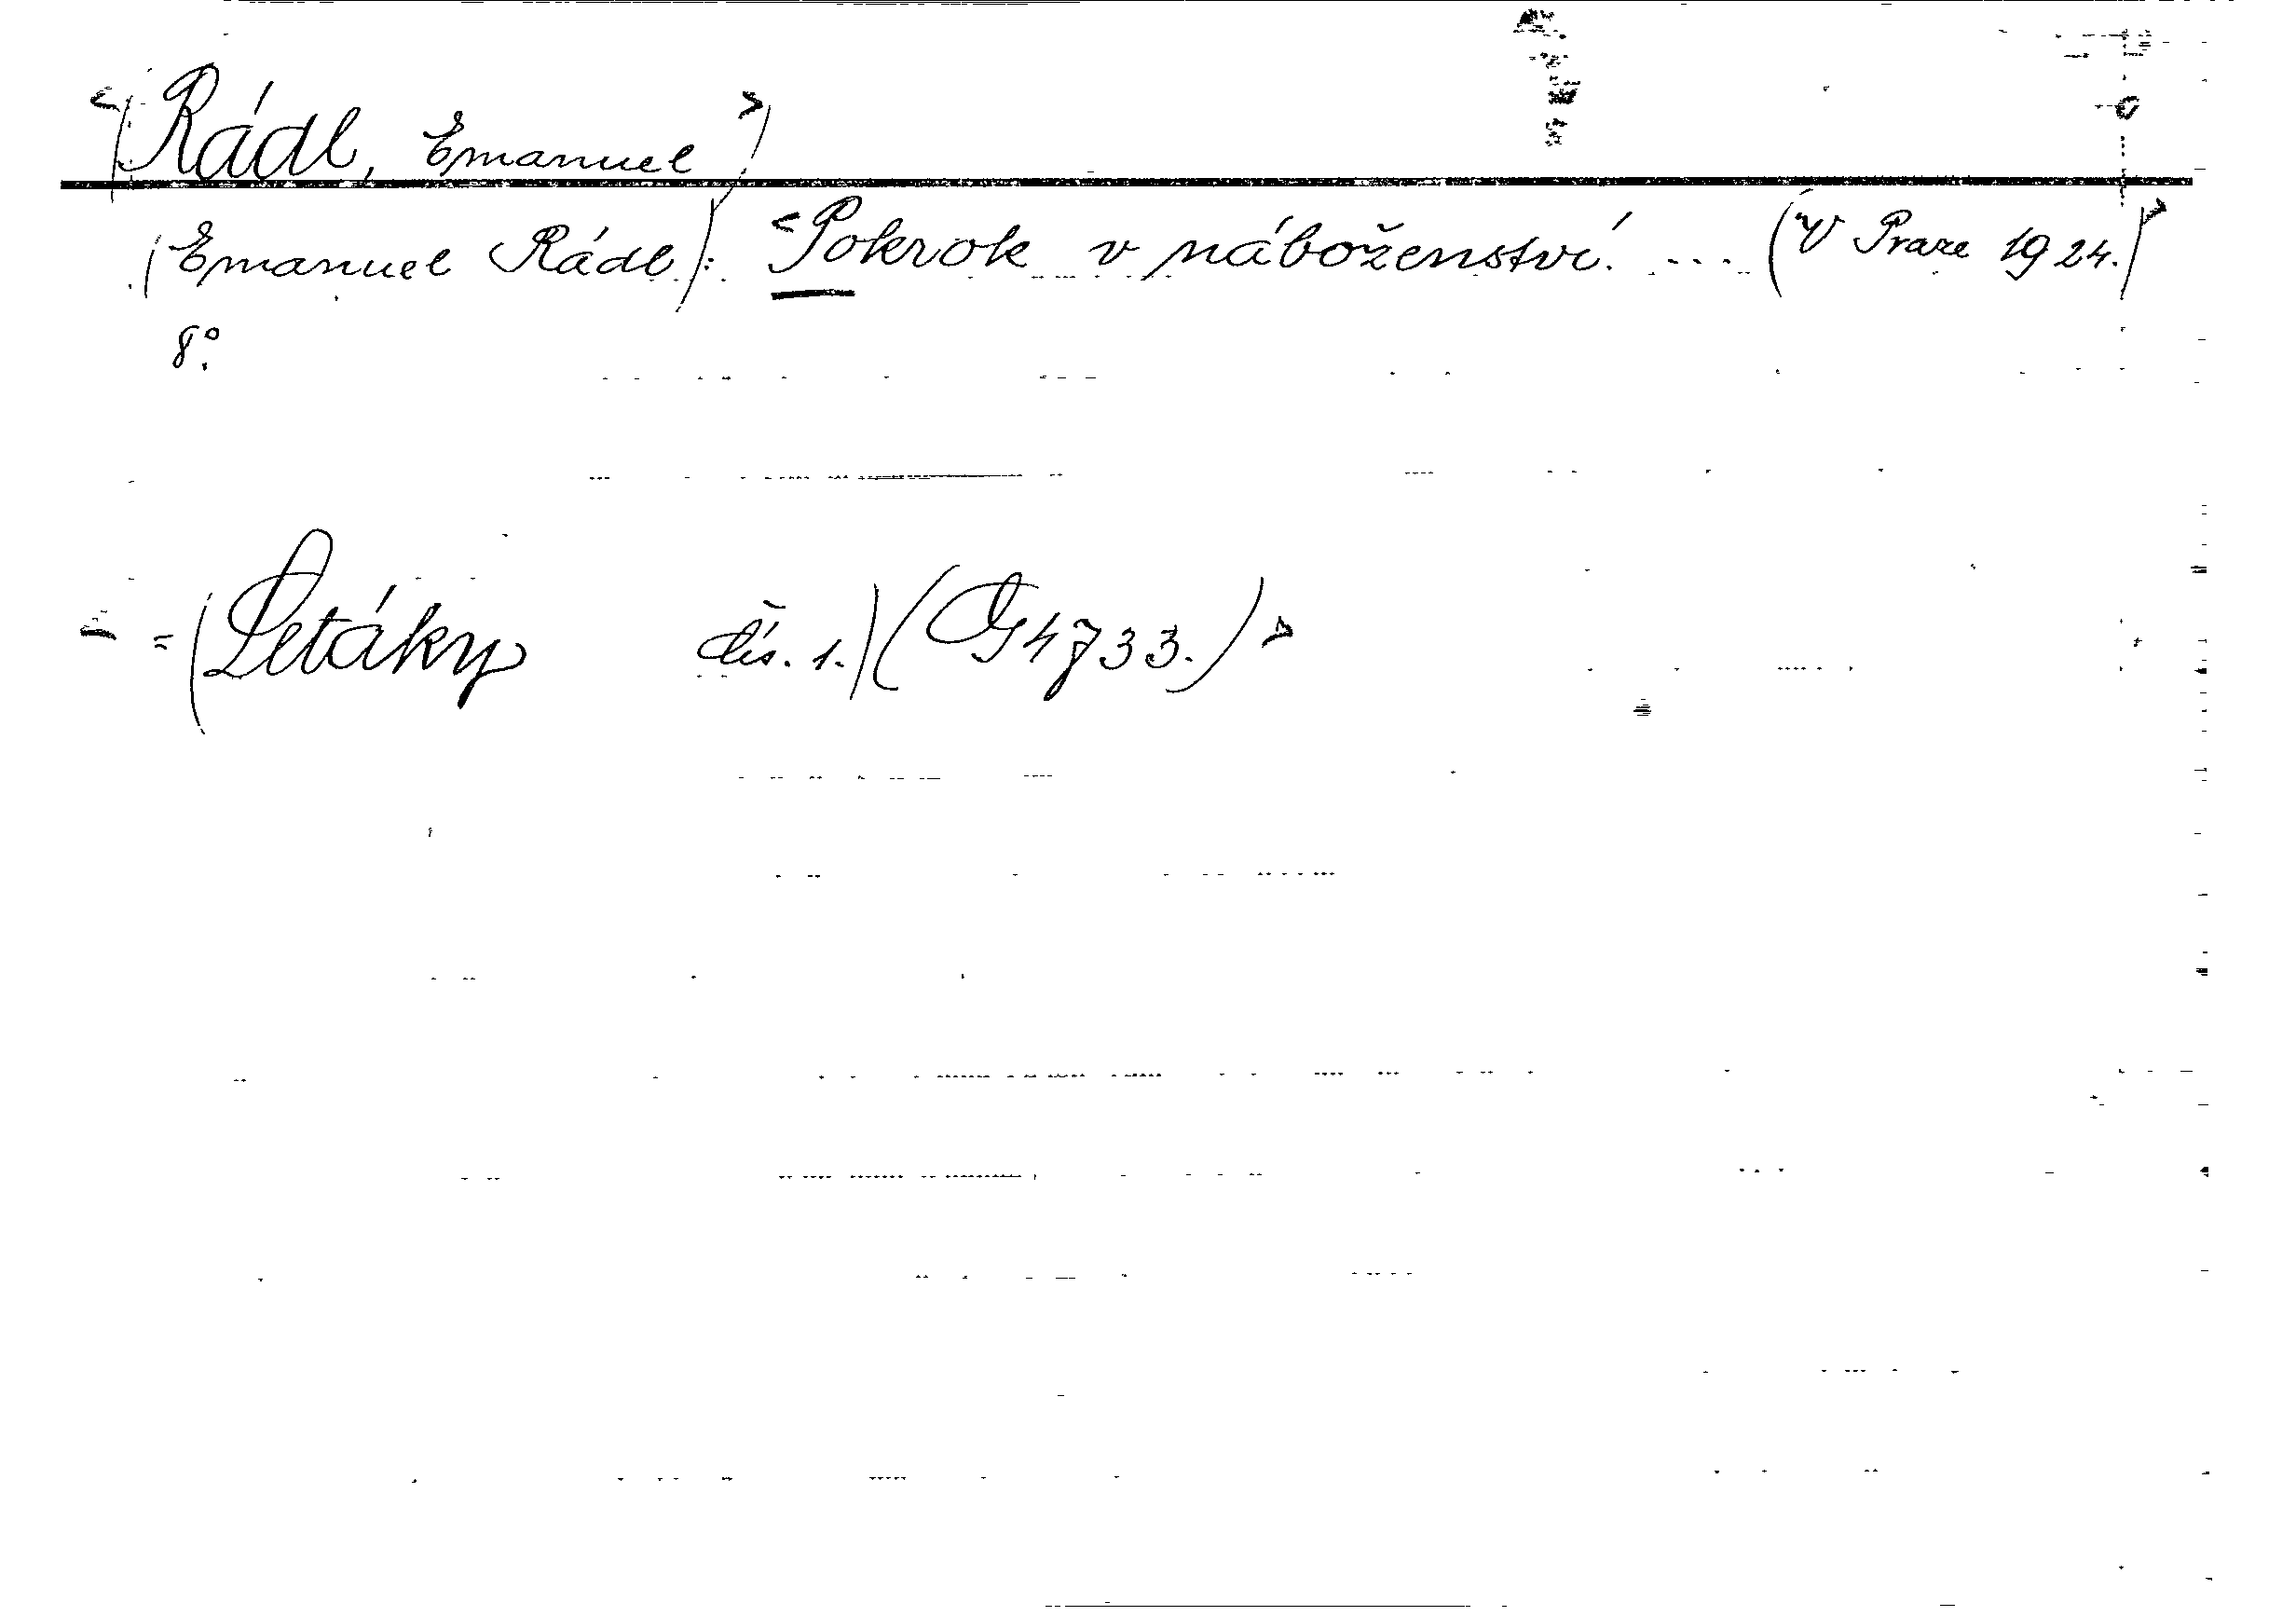 <(Rádl, Emanuel)>
(Emanuel Rádl): <Pokrok v náboženství. ... (V Praze 1924.)>
8°.
= (Letáky čís. 1.) (G 4733.)>